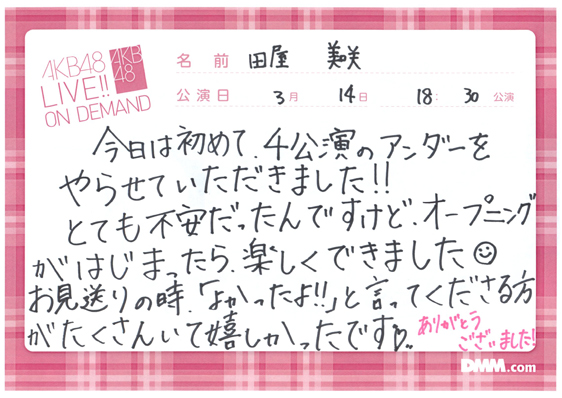 AKB48
LIVE!!
ON DEMAND
AKB
48
名前 田屋 美咲
公演日 3月 14日 18:30 公演
今日は初めて、チ公演のアンダーを
やらせていただきました!!
とても不安だったんですけど、オープニング
がはじまったら、楽しくできました☺
お見送りの時、「よかったよ!!」と言ってくださる方
がたくさんいて嬉しかったです♡
ありがとう
ございました!
DMM.com